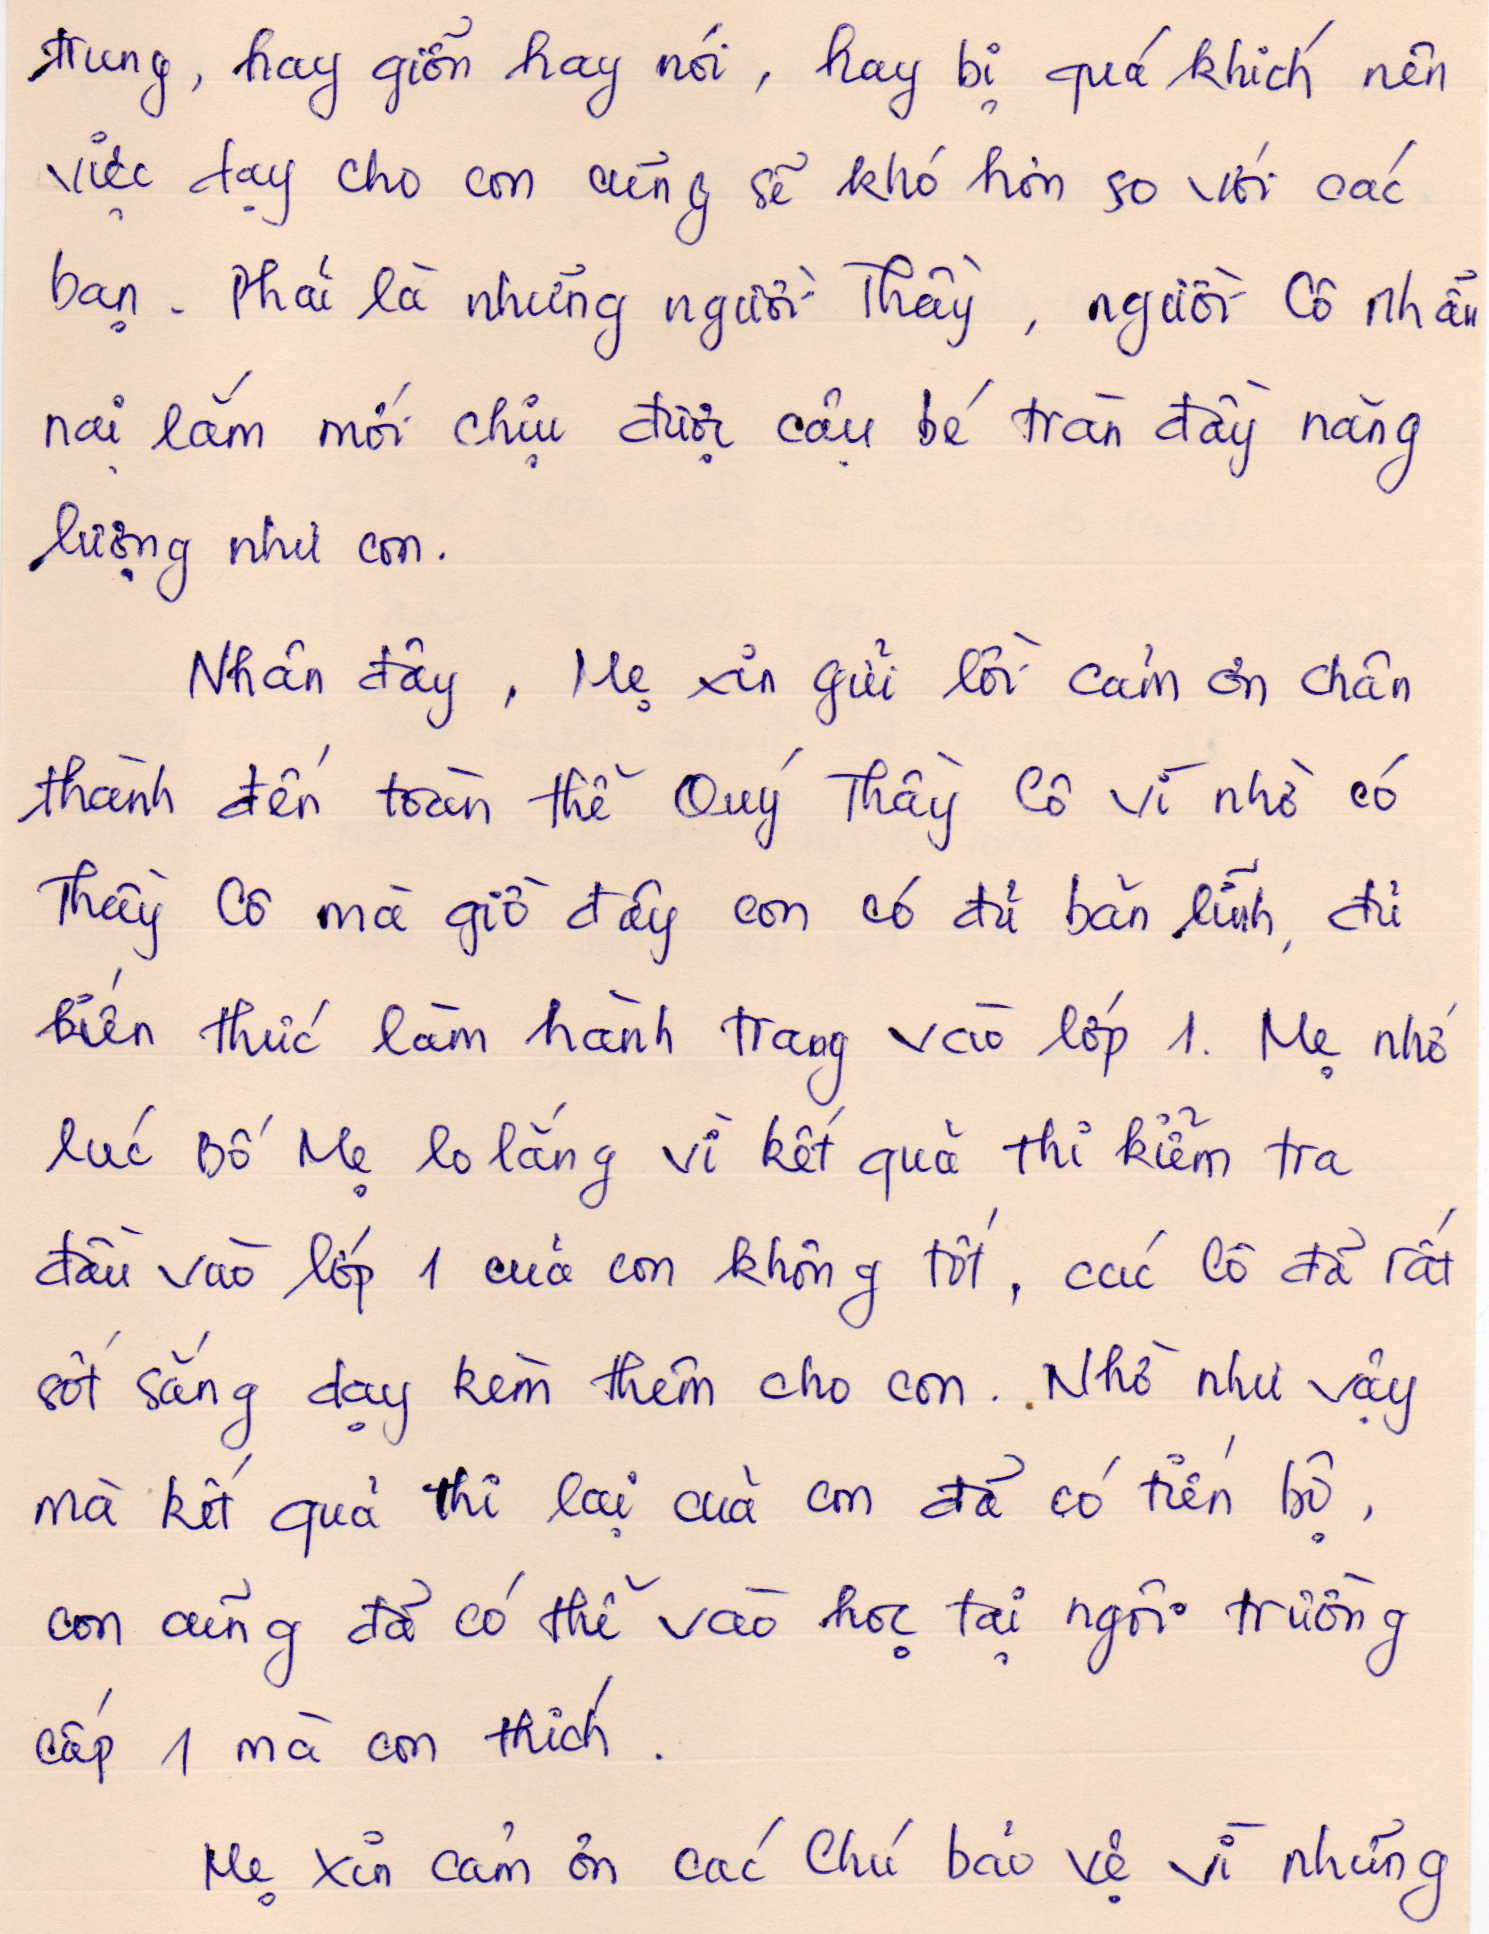 trung, hay giỡn hay nói, hay bị quá khích nên
việc dạy cho con cũng sẽ khó hơn so với các
bạn. Phải là những người Thầy, người Cô nhẫn
nại lắm mới chịu được cậu bé tràn đầy năng
lượng như con.
Nhân đây, Mẹ xin gửi lời cảm ơn chân
thành đến toàn thể Quý Thầy Cô vì nhờ có
Thầy Cô mà giờ đây con có đủ bản lĩnh, đủ
kiến thức làm hành trang vào lớp 1. Mẹ nhớ
lúc Bố Mẹ lo lắng vì kết quả thi kiểm tra
đầu vào lớp 1 của con không tốt, các Cô đã rất
sốt sắng dạy kèm thêm cho con. Nhờ như vậy
mà kết quả thi lại của con đã có tiến bộ,
con cũng đã có thể vào học tại ngôi trường
cấp 1 mà con thích.
Mẹ xin cảm ơn các Chú bảo vệ vì những